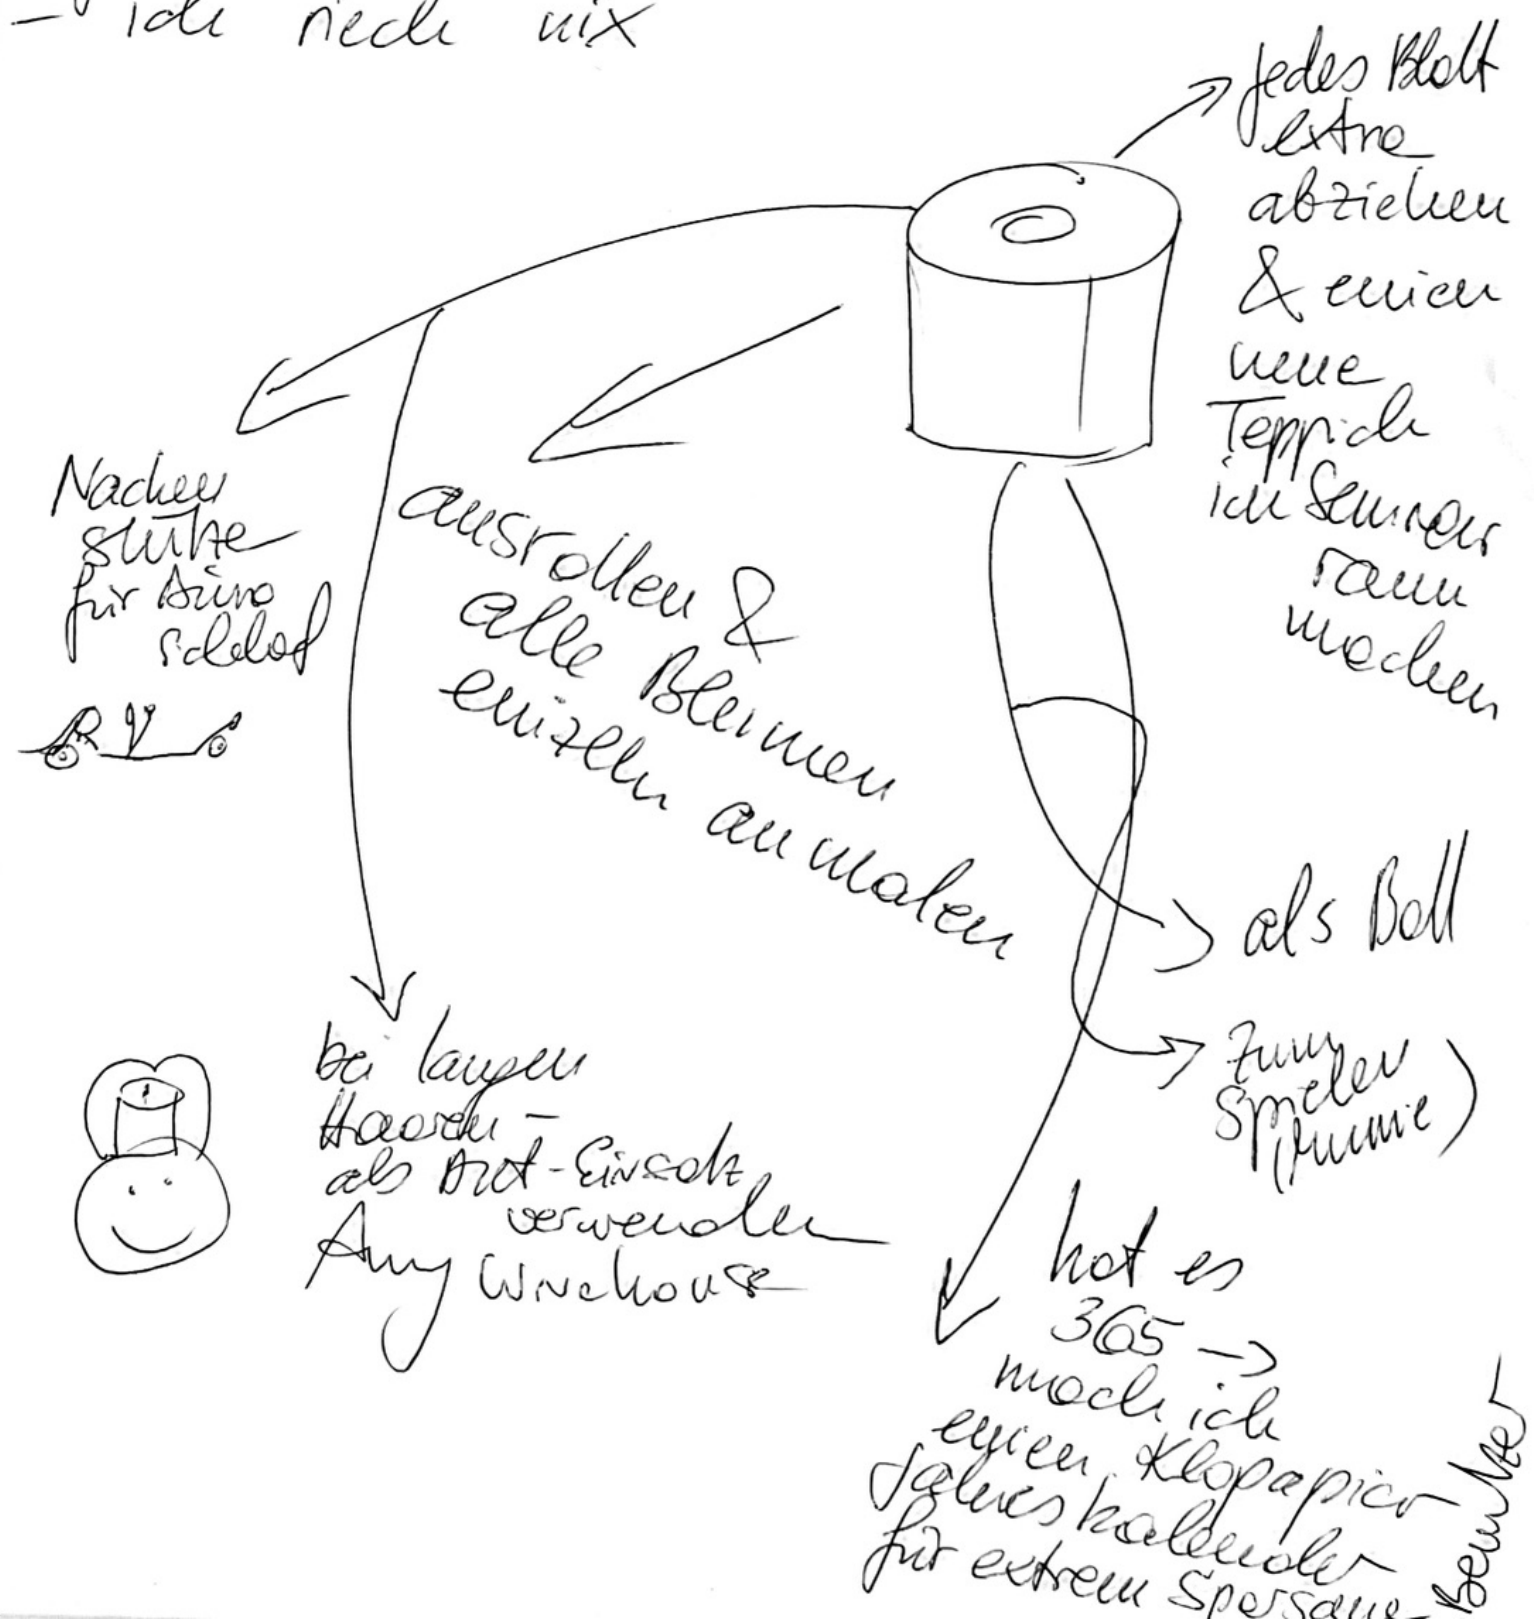 - ich riech nix
jedes Blatt
extra
abziehen
& einen
neue
Teppich
im Seminar
raum
machen
Nacken
stütze
für Büro
schlaf
ausrollen &
alle Blumen
einzeln anmalen
als Ball
zum
Spielen
bei langen
Haaren -
als Dutt-Einsatz
verwenden
Amy Winehouse
hat es
365 →
mach ich
einen Klopapier
Jahreskalender
für extrem Sparsame
Benutzer